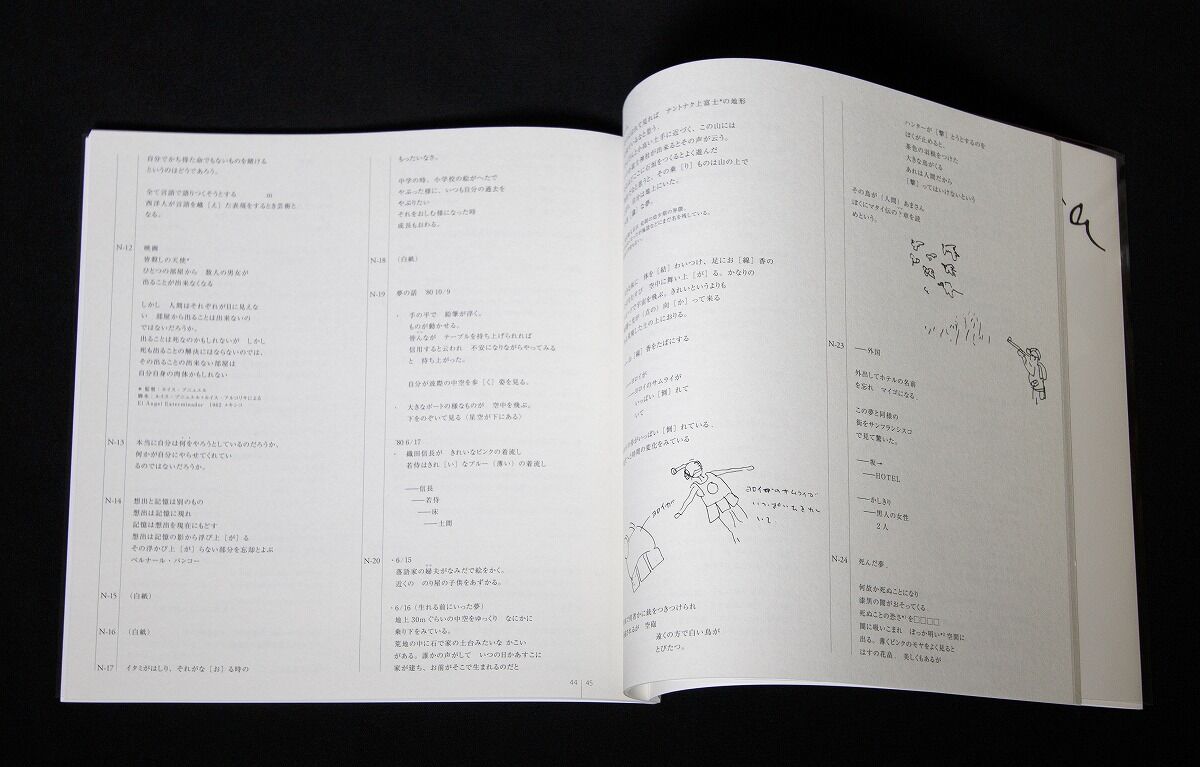 自分でかち得た命でもないものを賭ける
というのほどうであろう。
全て言語で語りつくそうとする
m
西洋人が言語を越［え］た表現をするとき芸術と
なる。
N-12 映画
皆殺しの天使*
ひとつの部屋から 数人の男女が
出ることが出来なくなる
しかし 人間はそれぞれが目に見えな
い 部屋から出ることは出来ないの
ではないだろうか。
出ることは死なのかもしれないが しかし
死も出ることの解決にはならないのでは、
その出ることの出来ない部屋は
自分自身の肉体かもしれない
＊監督：ルイス・ブニュエル
脚本：ルイス・ブニュエル＋ルイス・アルコリサによる
El Angel Exterminador 1962 メキシコ
N-13 本当に自分は何をやろうとしているのだろうか、
何かが自分にやらせてくれてい
るのではないだろうか。
N-14 想出と記憶は別のもの
想出は記憶に現れ
記憶は想出を現在にもどす
想出は記憶の影から浮び上［が］る
その浮かび上［が］らない部分を忘却とよぶ
ベルナール・パンコー
N-15 （白紙）
N-16 （白紙）
N-17 イタミがはしり、それがな［お］る時の
もったいなさ。
中学の時、小学校の絵がへたで
やぶった様に、いつも自分の過去を
やぶりたい
それをおしむ様になった時
成長もおわる。
N-18 （白紙）
N-19 夢の話 '80 10/9
・ 手の平で 鉛筆が浮く。
ものが動かせる。
皆んなが テーブルを持ち上げられれば
信用すると云われ 不安になりながらやってみる
と 持ち上がった。
自分が波際の中空を歩［く］姿を見る。
・ 大きなボートの様なものが 空中を飛ぶ。
下をのぞいて見る（星空が下にある）
'80 6/17
・ 織田信長が きれいなピンクの着流し
若侍はきれ［い］なブルー（薄い）の着流し
──信長
──若侍
──床
──土間
N-20 ・6/15
落語家の婦夫がなみだで絵をかく。
近くの のり屋の子供をあずかる。
・6/16（生れる前にいった夢）
地上30mぐらいの中空をゆっくり なにかに
乗り下をみている。
荒地の中に石で家の土台みたいな かこい
がある。誰かの声がして いつの日かあすこに
家が建ち、お前がそこで生まれるのだと
44 45
見れば ナントナク上富士*の地形
思う
手に近づく、この山には
が出来るとその声が云う。
に気をつけるとよく遊んだ
と思うと、その乗［り］ものは山の上で
地上にいた。
夢。
体を［結］わいつけ、足にお［線］香の
空中に舞い上［が］る。かなりの
を飛ぶ。きれいというよりも
向［か］って来る
土の上におりる。
香をたばにする
イのサムライが
いっぱい［倒］れて
いて
がいっぱい［倒］れている、
の変化をみている
ヨロイカゲ
ヨロイ姿のサムライが
いっぱいたおれて
いて
に銃をつきつけられ
遠くの方で白い鳥が
とびたつ。
ハンターが［撃］とうとするのを
ぼくが止めると、
茶色の羽根をつけた
大きな鳥がくる
あれは人間だから
［撃］ってはいけないという
その鳥が［人間］あまさん
ぼくにマタイ伝の？章を読
めという。
N-23 ──外国
外出してホテルの名前
を忘れ マイゴになる
この夢と同様の
街をサンフランシスコ
で見て驚いた。
──坂→
──HOTEL
──かしきり
──黒人の女性
2人
N-24 死んだ夢、
何故か死ぬことになり
漆黒の闇がおそってくる
死ぬことの恐さ*を□□□□
闇に吸いこまれ ほっか明い*空間に
出る。薄くピンクのモヤをよく見ると
はすの花畠、美しくもあるが